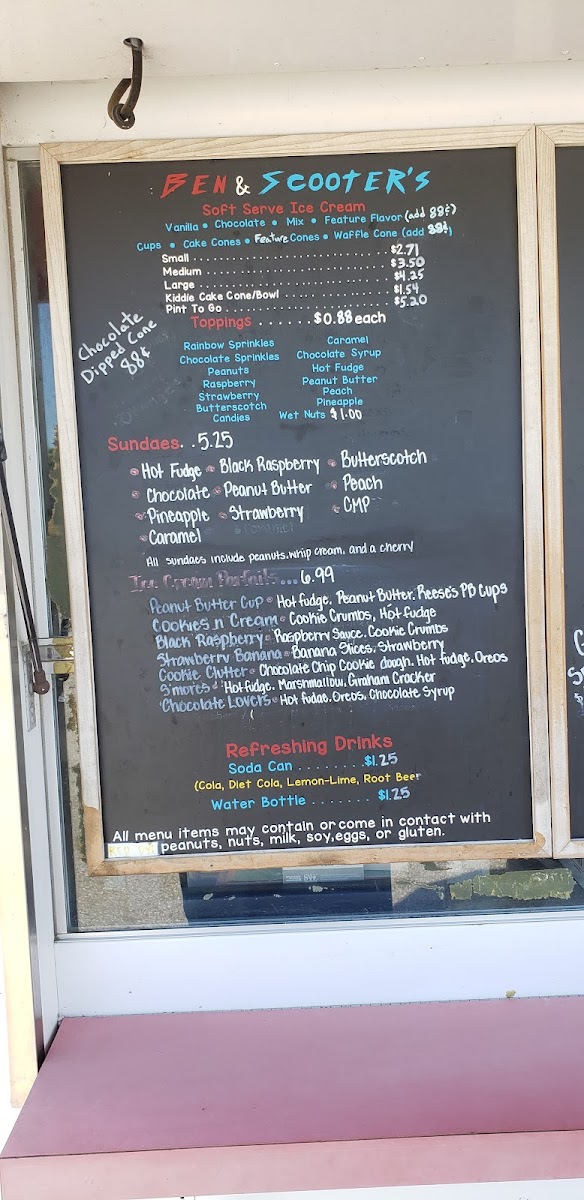 BEN & SCOOTER'S
Soft Serve Ice Cream
Vanilla • Chocolate • Mix • Feature Flavor (add 88¢)
Cups • Cake Cones • Feature Cones • Waffle Cone (add 88¢)
Small ........ $2.71
Medium ........ $3.50
Large ........ $4.25
Kiddie Cake Cone/Bowl ........ $1.54
Pint To Go ........ $5.20
Toppings ...... $0.88 each
Chocolate
Dipped Cone
88¢
Rainbow Sprinkles Caramel
Chocolate Sprinkles Chocolate Syrup
Peanuts Hot Fudge
Raspberry Peanut Butter
Strawberry Peach
Butterscotch Pineapple
Candies Wet Nuts $1.00
Sundaes..5.25
Hot Fudge Black Raspberry Butterscotch
Chocolate Peanut Butter Peach
Pineapple Strawberry CMP
Caramel
All sundaes include peanuts, whip cream, and a cherry
Ice Cream Parfaits...6.99
Peanut Butter Cup • Hot fudge, Peanut Butter, Reese's PB Cups
Cookies n Cream • Cookie Crumbs, Hot fudge
Black Raspberry • Raspberry Sauce, Cookie Crumbs
Strawberry Banana • Banana Slices, Strawberry
Cookie Clutter • Chocolate Chip Cookie dough, Hot fudge, Oreos
S'mores • Hot fudge, Marshmallow, Graham Cracker
Chocolate Lovers • Hot fudge, Oreos, Chocolate Syrup
Refreshing Drinks
Soda Can ........ $1.25
(Cola, Diet Cola, Lemon-Lime, Root Beer
Water Bottle ....... $1.25
All menu items may contain or come in contact with
peanuts, nuts, milk, soy, eggs, or gluten.